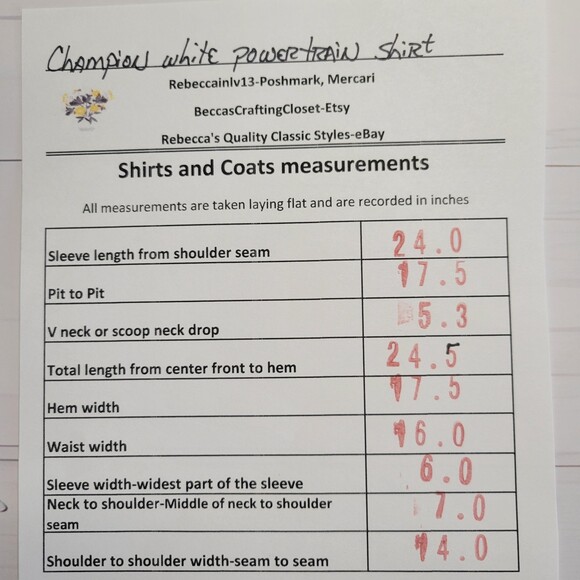 Champion white powertrain shirt
Rebeccainlv13-Poshmark, Mercari
BeccasCraftingCloset-Etsy
Rebecca's Quality Classic Styles-eBay
Shirts and Coats measurements
All measurements are taken laying flat and are recorded in inches
Sleeve length from shoulder seam 24.0
Pit to Pit 17.5
V neck or scoop neck drop 5.3
Total length from center front to hem 24.5
Hem width 17.5
Waist width 16.0
Sleeve width-widest part of the sleeve 6.0
Neck to shoulder-Middle of neck to shoulder
seam 7.0
Shoulder to shoulder width-seam to seam 14.0